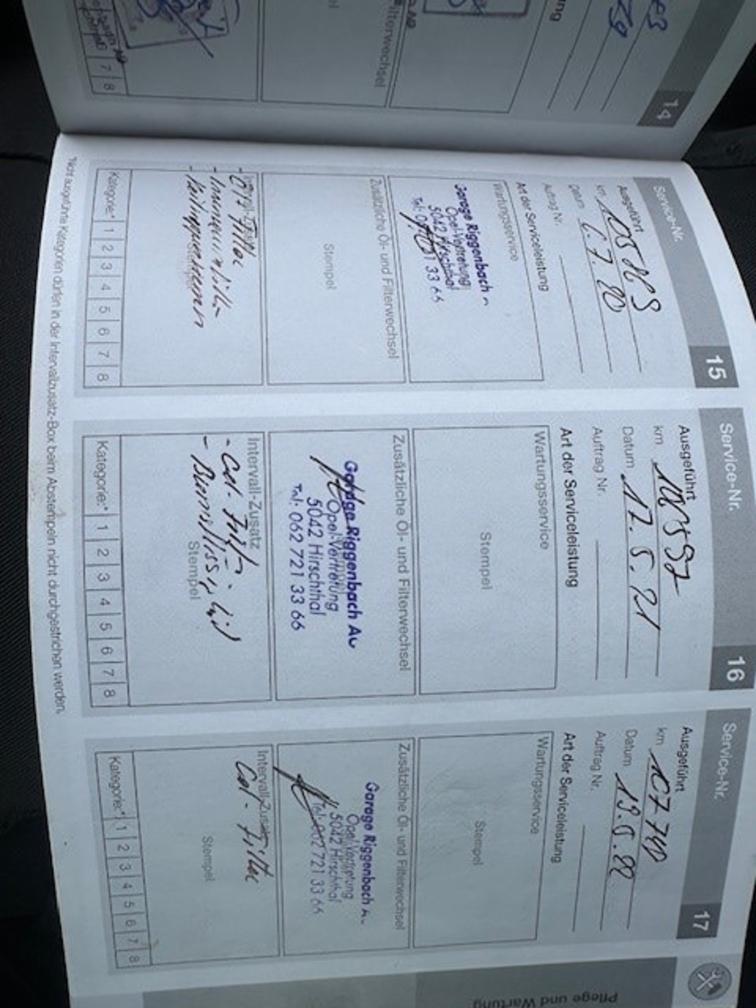 14
Filterwechsel
7 8
Service-Nr. 15
Ausgeführt
km 105169
Datum 6.7.20
Auftrag Nr.
Art der Serviceleistung
Wartungsservice
Garage Riggenbach
Opel-Vertretung
5042 Hirschthal
Tel. 721 33 66
Zusätzliche Öl- und Filterwechsel
Stempel
Kategorie:* 1 2 3 4 5 6 7 8
Service-Nr. 16
Ausgeführt
km
Datum 17.5.21
Auftrag Nr.
Art der Serviceleistung
Wartungsservice
Stempel
Zusätzliche Öl- und Filterwechsel
Garage Riggenbach AG
Opel-Vertretung
5042 Hirschthal
Tel. 062 721 33 66
Intervall-Zusatz
- Cal-Filter
Stempel
Kategorie:* 1 2 3 4 5 6 7 8
Service-Nr. 17
Ausgeführt
km 107740
Datum 19.5.22
Auftrag Nr.
Art der Serviceleistung
Wartungsservice
Stempel
Zusätzliche Öl- und Filterwechsel
Garage Riggenbach
Opel-Vertretung
5042 Hirschthal
Tel. 062 721 33 66
Intervall-Zusatz
Cal-Filter
Stempel
Kategorie:* 1 2 3 4 5 6 7 8
*Nicht ausgeführte Kategorien dürfen in der Intervallzusatz-Box beim Abstempeln nicht durchgestrichen werden.
Pflege und Wartung